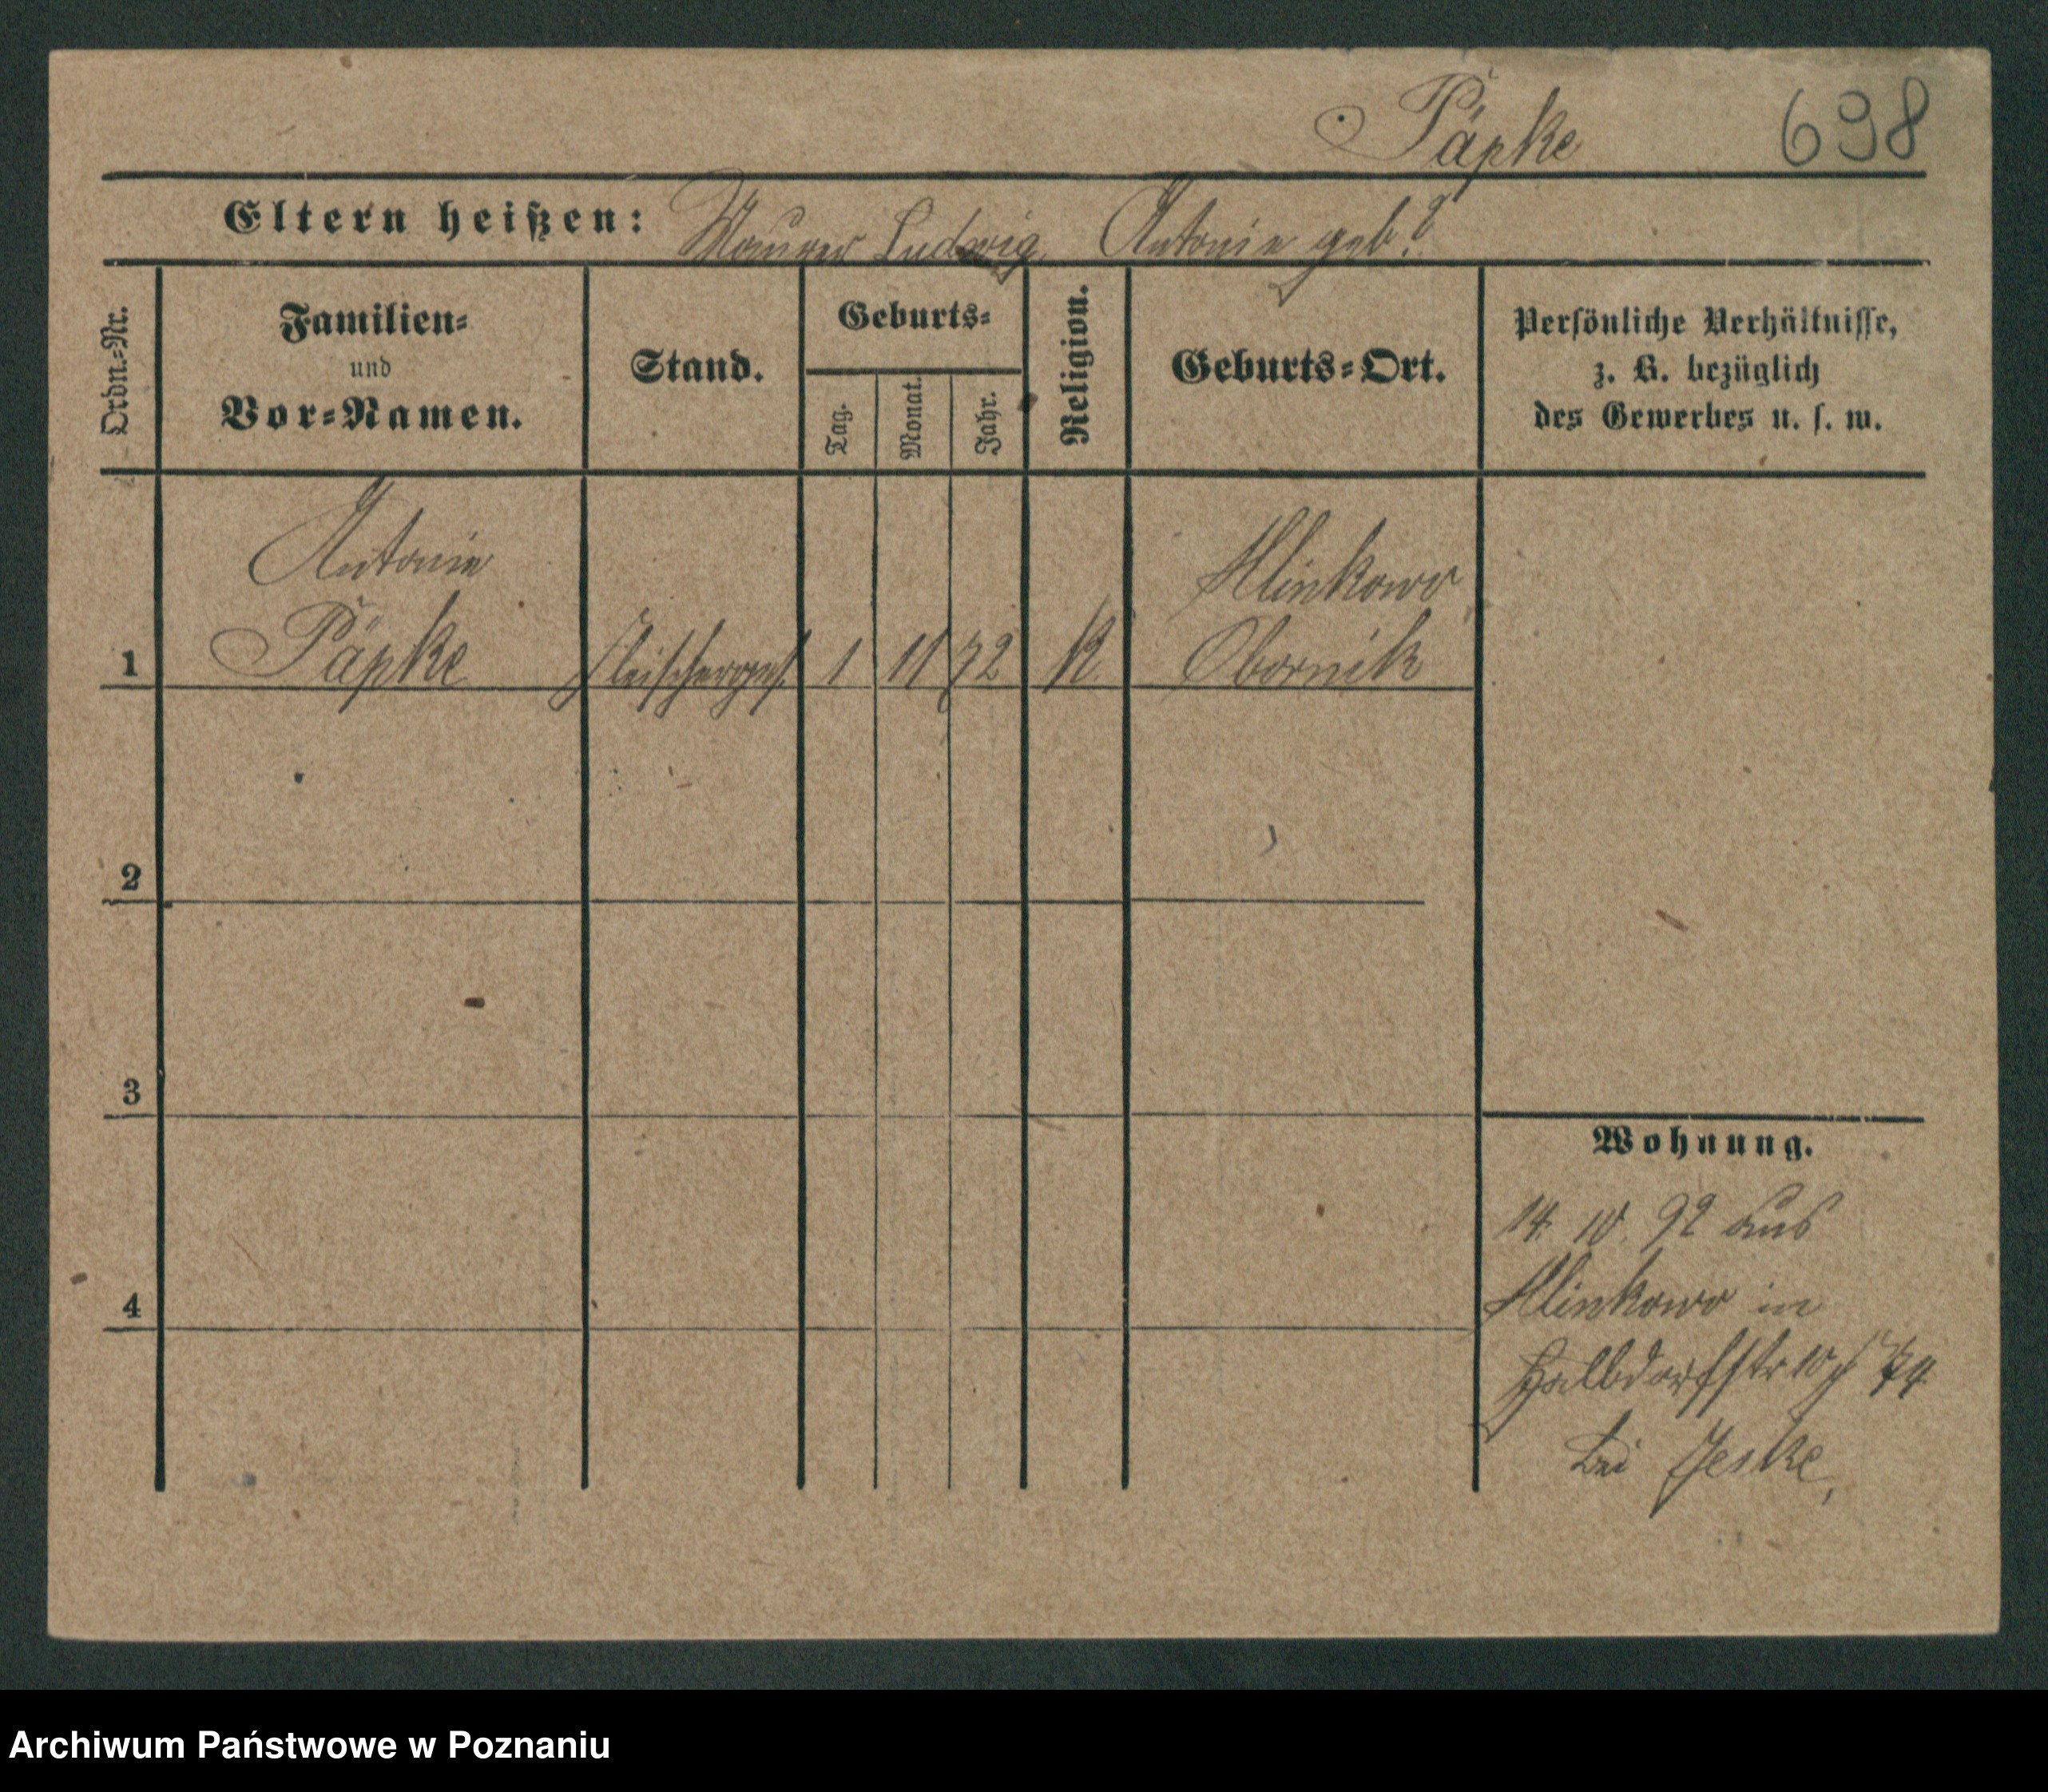 Päpke 698
Eltern heißen: Maurer Ludwig, Antonie geb. ?
Ordn.-Nr.
Familien-
und
Vor-Namen.
Stand.
Geburts-
Tag.
Monat.
Jahr.
Religion.
Geburts-Ort.
Persönliche Verhältnisse,
z. B. bezüglich
des Gewerbes u. s. w.
Antonie
Päpke
1 Fleischerges. 1 11 72 K.
Hlinkowo
Obornik
2
3
4
Wohnung.
14. 10. 92 aus
Hlinkowo in
Halbdorfstr 10
bei Jeske,
Archiwum Państwowe w Poznaniu